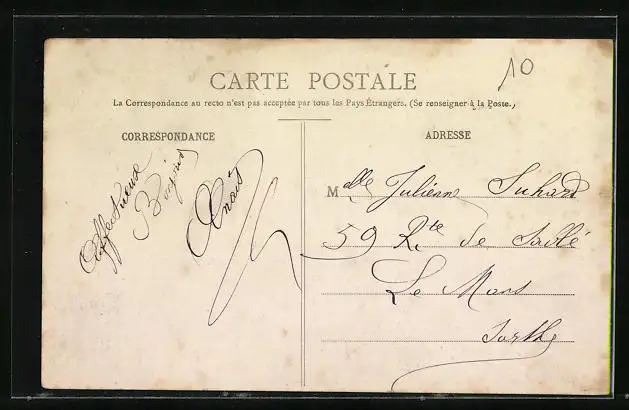 10
CARTE POSTALE
La Correspondance au recto n'est pas acceptée par tous les Pays Étrangers. (Se renseigner à la Poste.)
CORRESPONDANCE
Affectueux
Baisers
Anaïs
ADRESSE
Mlle Julienne Suhard
59 Rte de Sablé
Le Mans
Sarthe